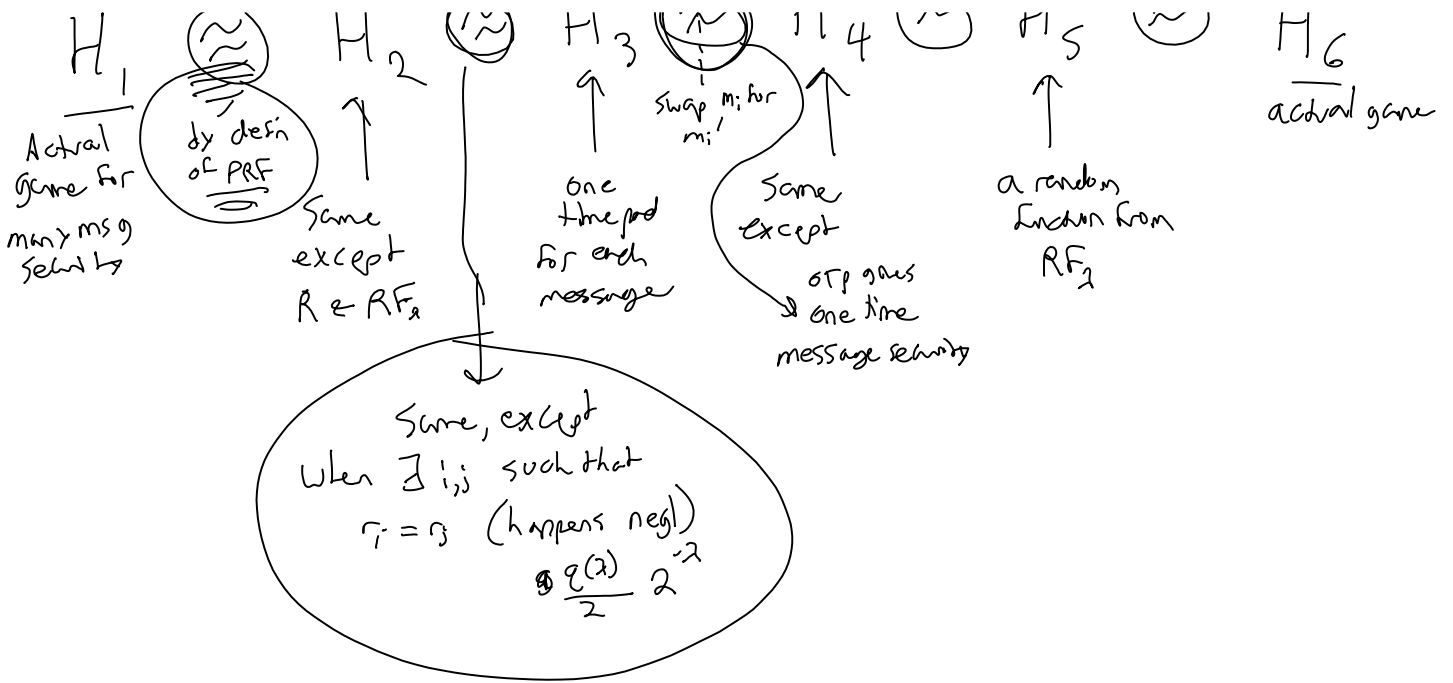 H₁ ≈ H₂ ≈ H₃ ≈ H₄ ≈ H₅ ≈ H₆
Actual
game for
many msg
security
by defn
of PRF
Same
except
R ← RF_λ
one
time pad
for each
message
swap mᵢ for
mᵢ'
Same
except
OTP gives
one time
message security
a random
function from
RF_λ
actual game
Same, except
when ∃ i,j such that
rᵢ = rⱼ (happens negl)
q(λ)/2 2^-λ